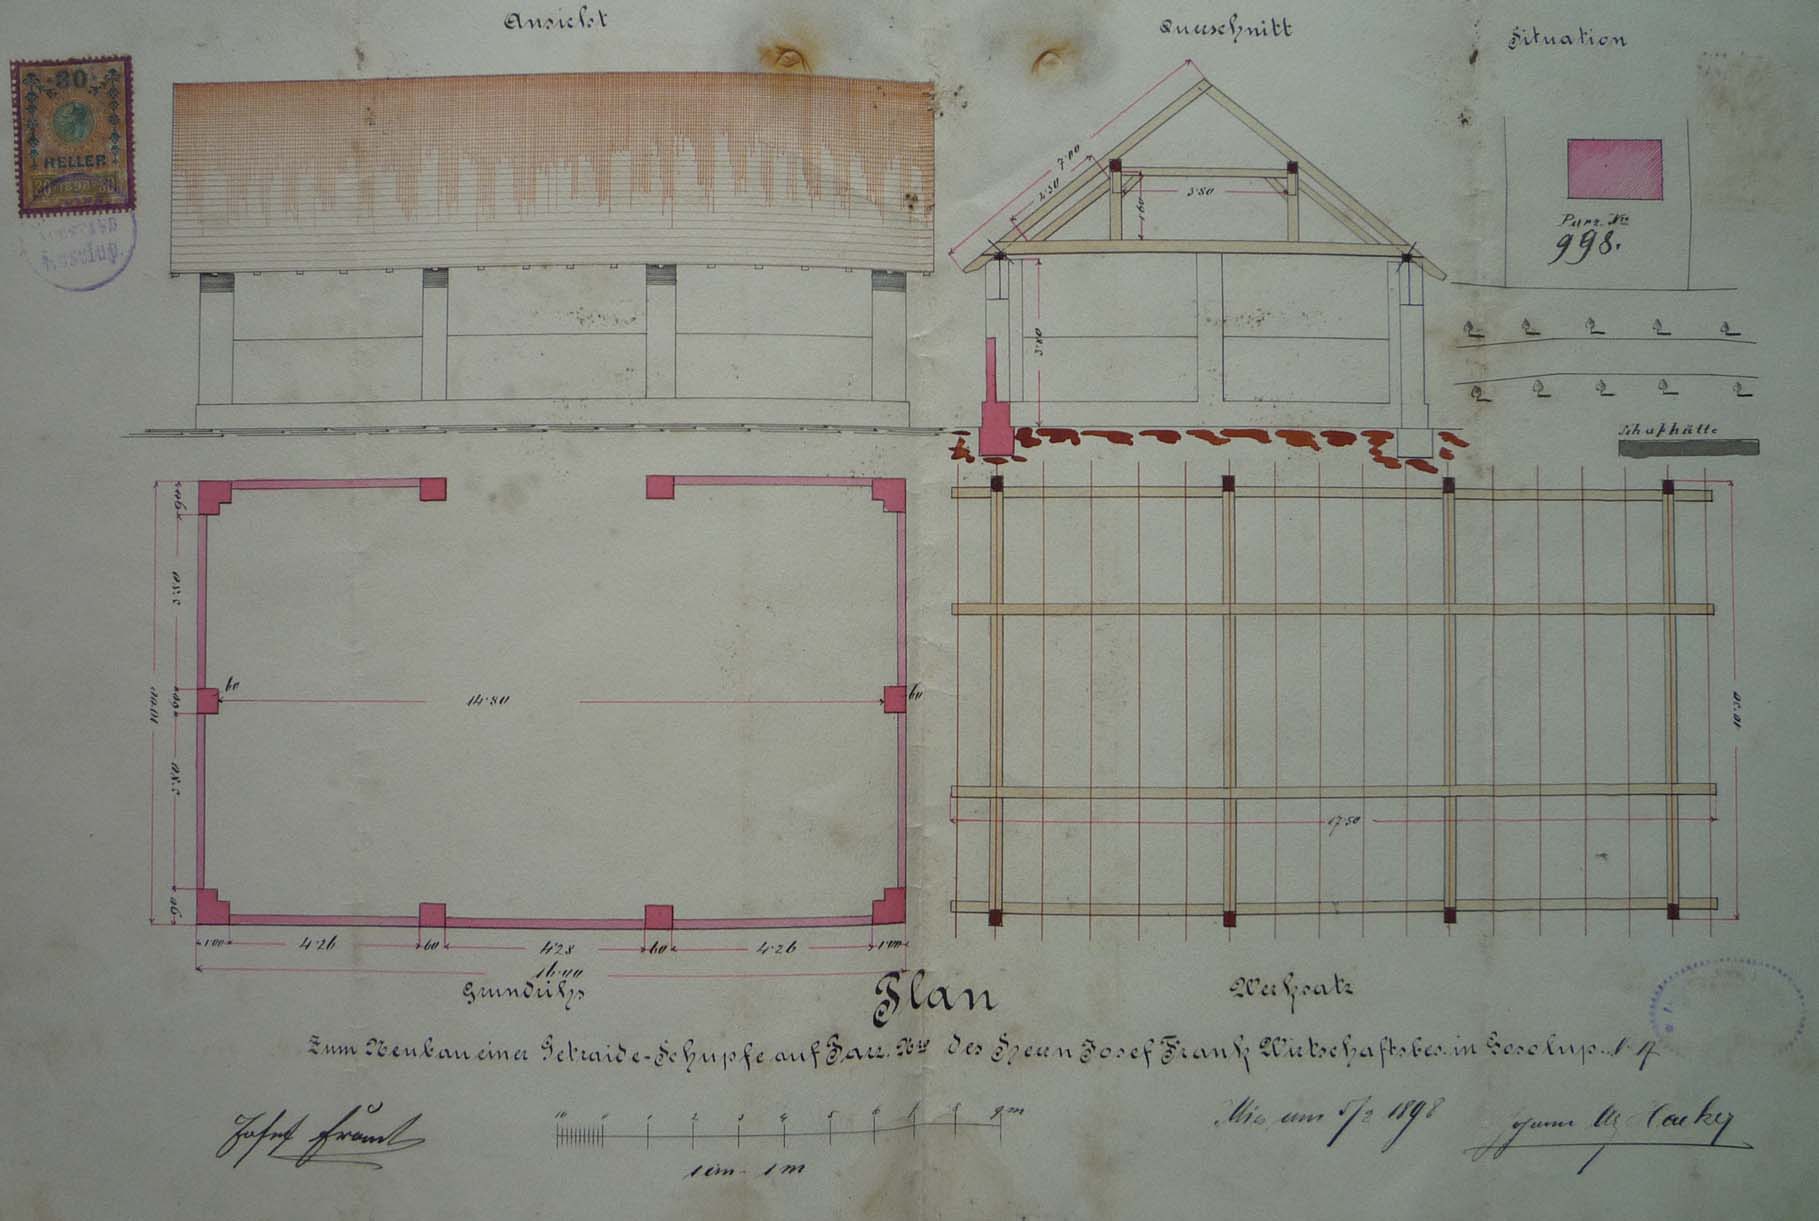 Ansicht
Querschnitt
Situation
30
HELLER
1898
7·00
2·50
3·80
1·60
3·80
Parz. Nro
998.
Schafhütte
90
3·80
60
3·80
90
10·00
60
14·80
60
1·00
4·26
60
4·28
60
4·26
1·00
16·00
17·50
10·20
Grundriss
Plan
Werksatz
Zum Neubau einer Getraide-Schupfe auf Parz. Nro des Herrn Josef Frank Wirtschaftsbes. in
1 2 3 4 5 6 7 8 9 m
1 cm - 1 m
am 5/2 1898
Josef Frank
Johann